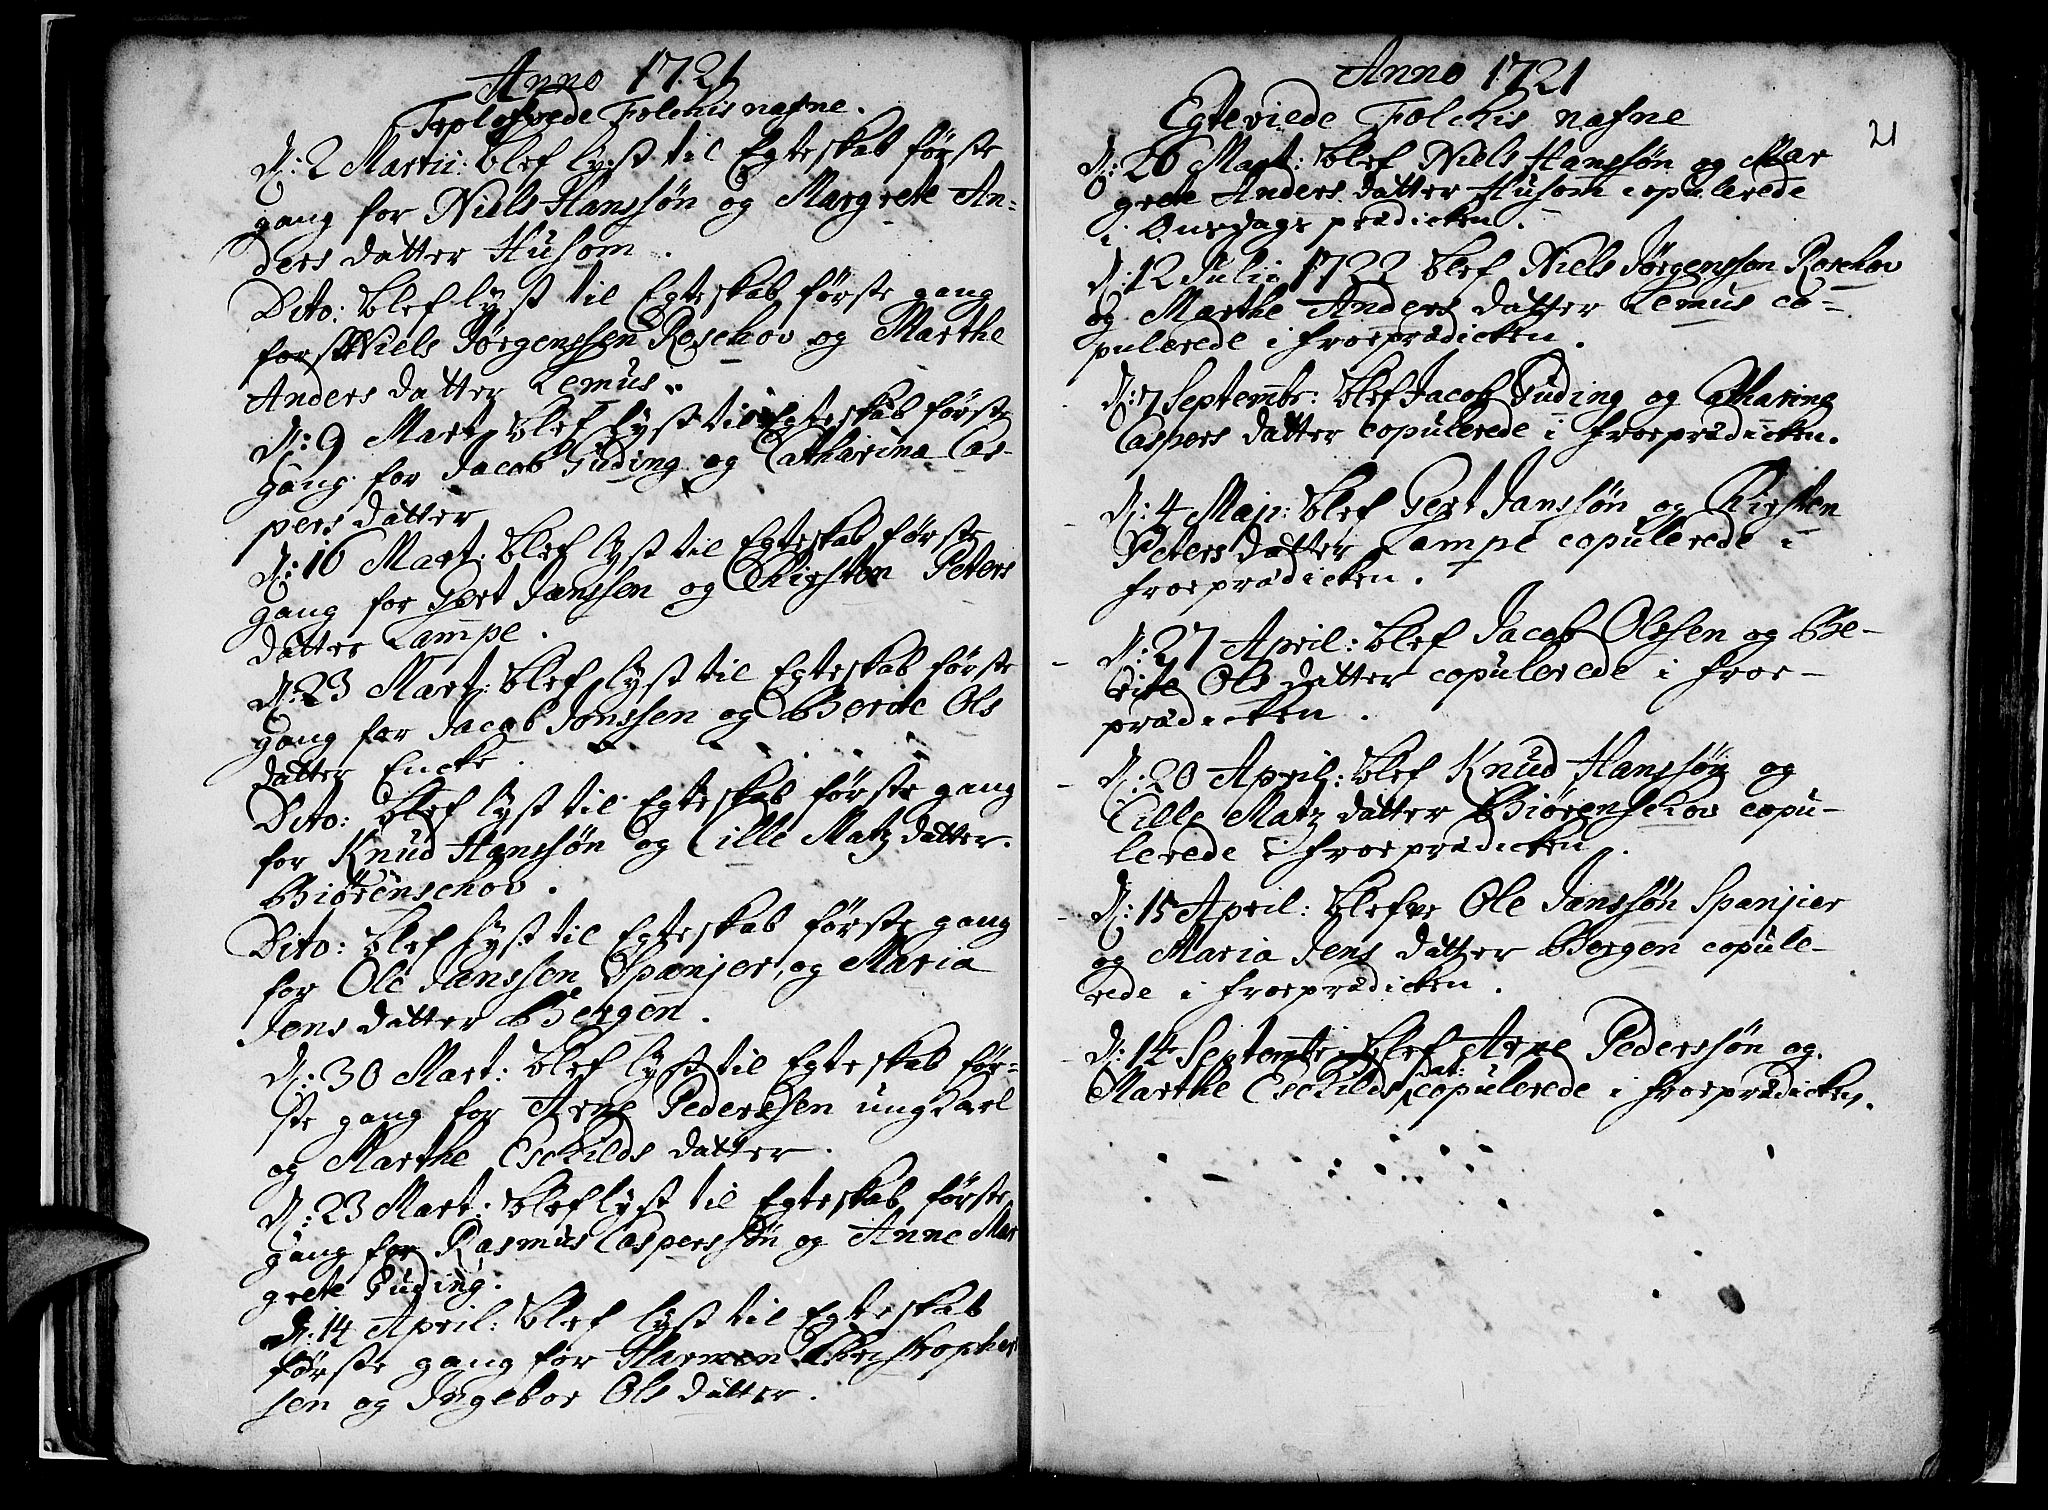 Anno 1721
Troloffvede Folckis nafne.
D: 2 Martii: blef lyst til Egteskab første
gang for Niels Hanssøn og Margrete An-
ders datter Husom.
Dito: blef lyst til Egteskab første gang
for Niels Jørgenssen Roschov og Marthe
Anders datter Lemus.
D: 9 Mart: blef lyst til Egteskab første
gang for Jacob Guding og Catharina Cas-
pers datter
D: 16 Mart: blef lyst til Egteskab første
gang for Gert Janssen og Chirsten Peters
datter Lampe.
D: 23 Mart: blef lyst til Egteskab første
gang for Jacob Jonssen og Berite Ols
datter Encke.
Dito: blef lyst til Egteskab første gang
for Knud Hanssøn og Cille Matz datter.
Biørenschov.
Dito: blef lyst til Egteskab første gang
for Ole Janssen Spanjer, og Maria
Jens datter Bergen.
D: 30 Mart: blef lyst til Egteskab før-
ste gang for Arne Pederssen ung Karl
og Marthe Eschilds datter.
D: 23 Mart: blef lyst til Egteskab første
gang for Rasmus Casperssøn og Anne Mar
grete Guding.
D: 14 April: blef lyst til Egteskab
første gang for Harmen Christopher
sen og Ingebor Ols datter.
Anno 1721
Egteviede Folckis nafne
21
D: 26 Mart: blef Niels Hanssøn og Mar
grete Anders datter Husom copulerede
i Onsdags prædicken.
D: 12 Julii 1722 blef Niels Jørgensson Roschov
og Marthe Anders datter Lemus co-
pulerede i froeprædicken.
D: 7 Septembr: blef Jacob Guding og Catharina
Caspers datter copulerede i froeprædicken.
D: 4 Maji: blef Gert Janssøn og Chirsten
Peters datter Lampe copulerede i
froeprædicken.
D: 27 April: blef Jacob Olssen og Be-
rite Ols datter copulerede i froe-
prædicken.
D: 20 April: blef Knud Hanssøn og
Cille Matz datter Biørenschov copu-
lerede i froeprædicken.
D: 15 April: blefve Ole Janssøn Spanjier
og Maria Jens datter Bergen copule-
rede i froeprædicken.
D: 14 Septembr: blef Arne Pederssøn og
Marthe Eschilds dat: copulerede i froeprædicken.